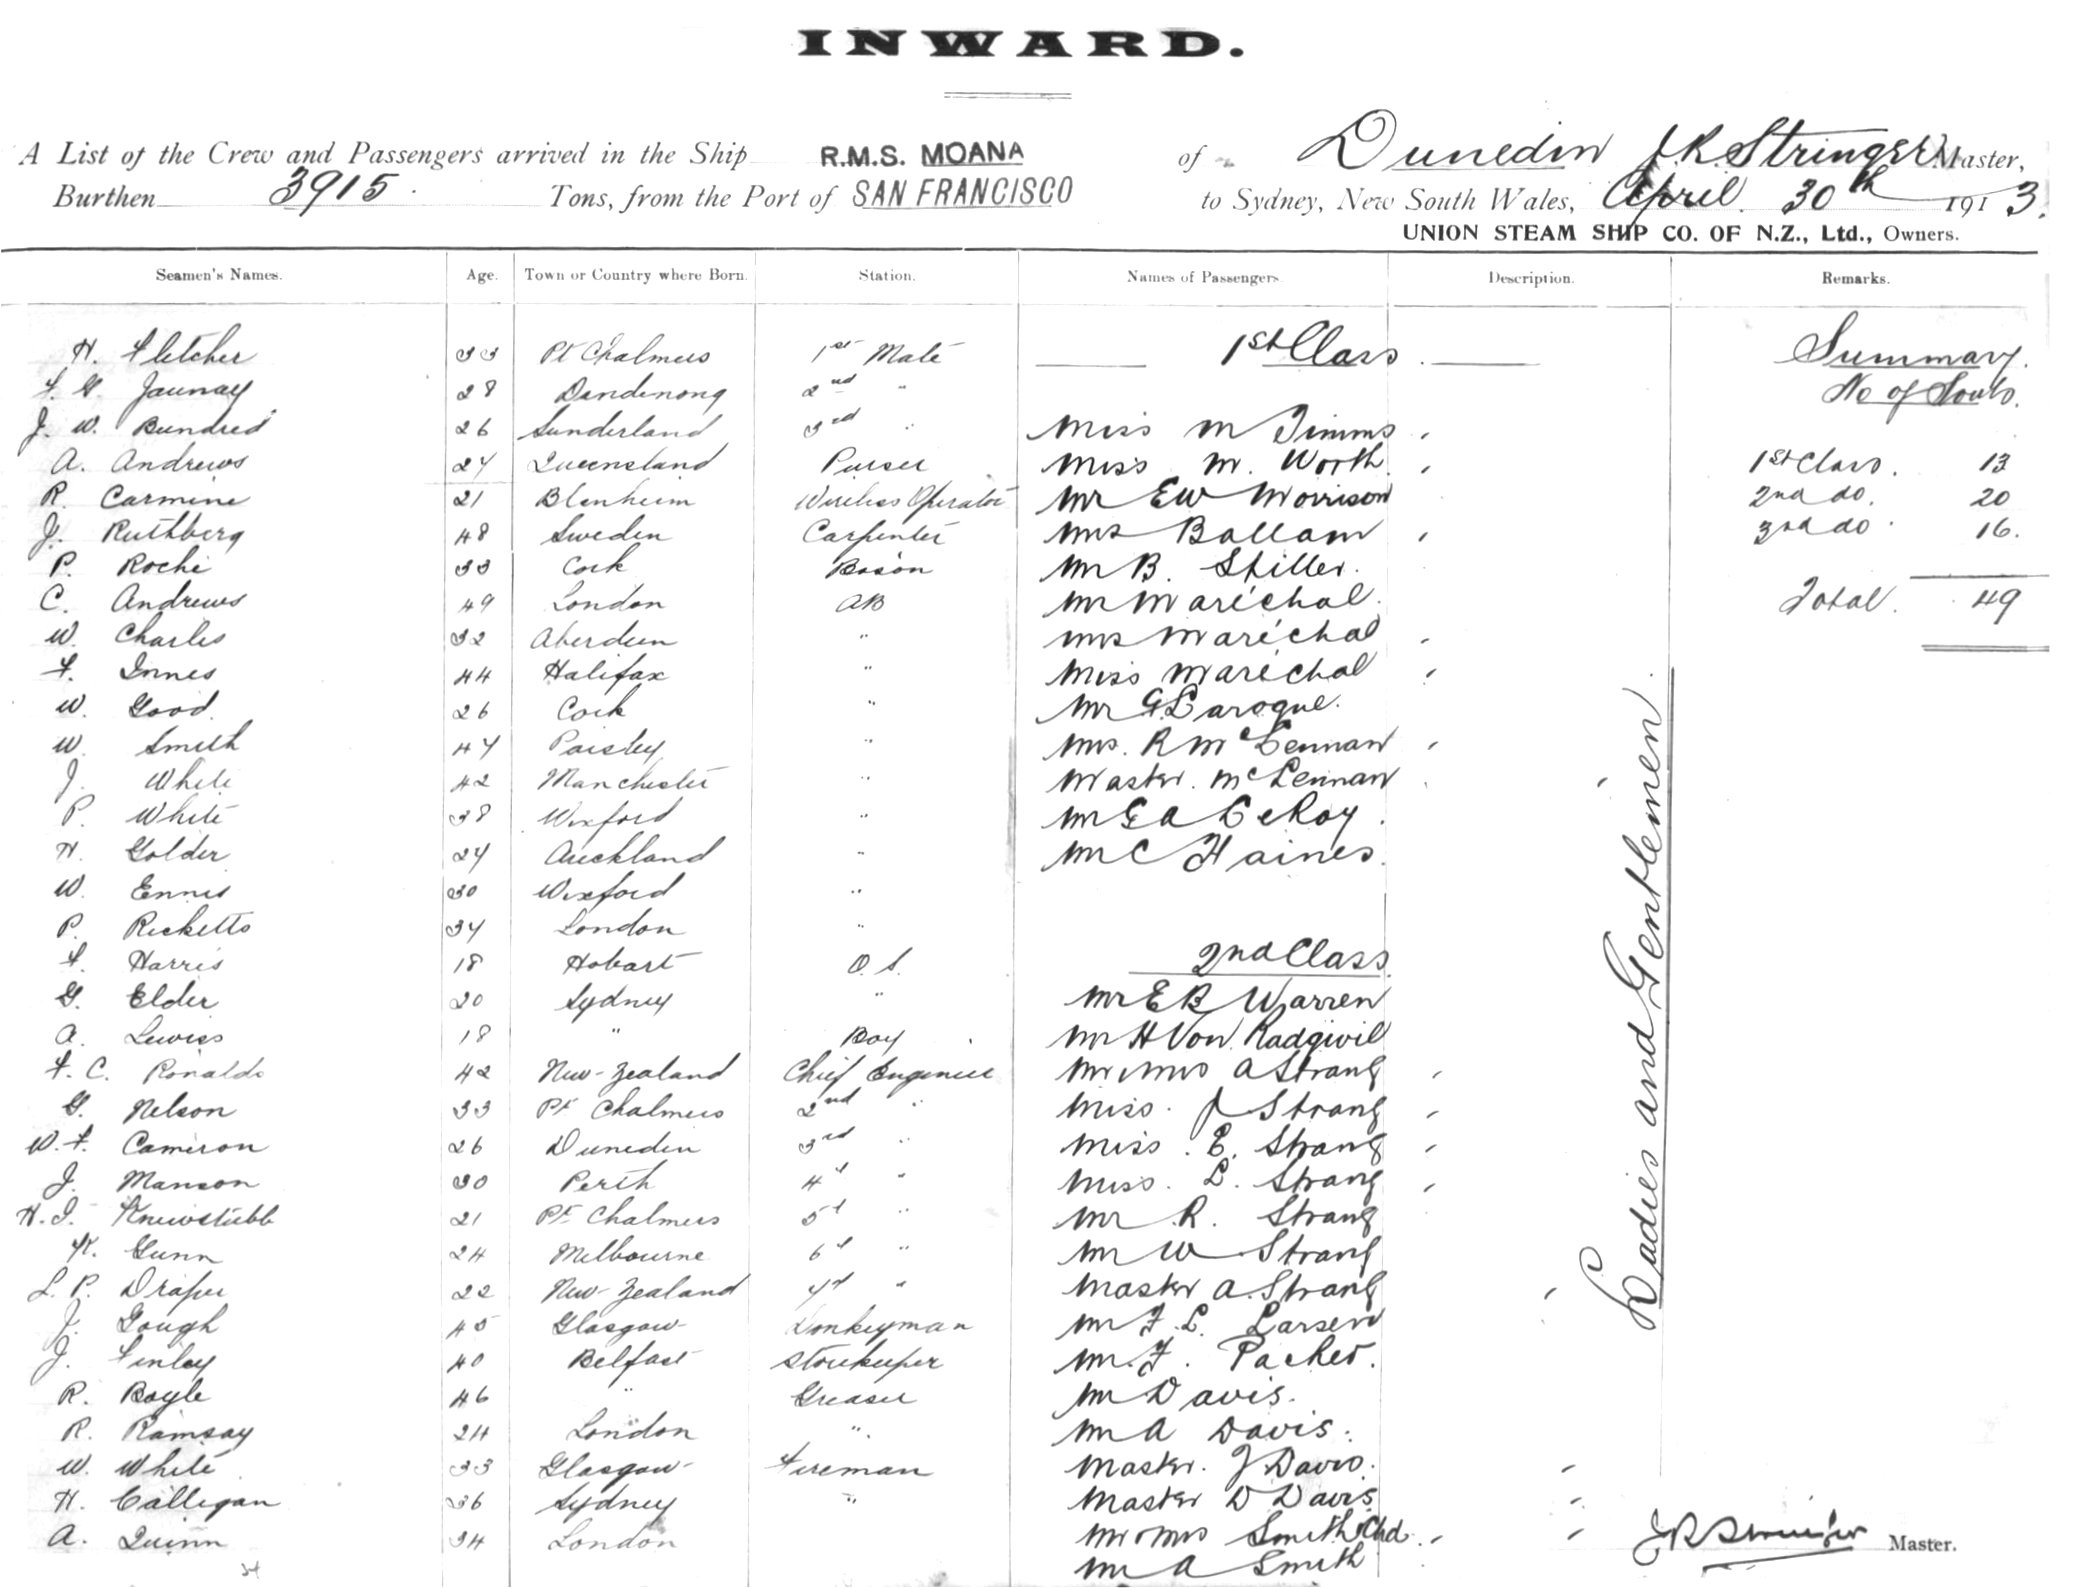 INWARD.
A List of the Crew and Passengers arrived in the Ship R.M.S. MOANA of Dunedin J.R. Stringer Master,
Burthen 3915 Tons, from the Port of SAN FRANCISCO to Sydney, New South Wales, April 30th 1913.
UNION STEAM SHIP CO. OF N.Z., Ltd., Owners.
Seamen's Names. Age. Town or Country where Born. Station. Names of Passengers. Description. Remarks.
H. Fletcher 33 Pt Chalmers 1st Mate 1st Class Summary.
F. G. Jaunay 28 Dandenong 2nd " No of Souls.
J. W. Bundred 26 Sunderland 3rd " Miss M Timms
A. Andrews 27 Queensland Purser Miss M. Worth 1st Class. 13
R. Carmine 21 Blenheim Wireless Operator Mr E W Morrison 2nd do. 20
J. Ruthberg 48 Sweden Carpenter Mrs Ballam 3rd do. 16.
P. Roche 33 Cork Bosòn Mr B. Stiller.
C. Andrews 49 London AB Mr Maréchal. Total. 49
W. Charles 32 Aberdeen " Mrs Maréchal
F. Innes 44 Halifax " Miss Maréchal
W. Good. 26 Cork " Mr G. Laroque.
W. Smith 47 Paisley " Mrs. R McLennan
J. White 42 Manchester " Master. McLennan
P. White 38 Wexford " Mr G A LeRoy.
H. Golder 27 Auckland " Mr C Haines.
W. Ennis 30 Wexford "
P. Ricketts 37 London "
F. Harris 18 Hobart O.S. 2nd Class
G. Elder 20 Sydney " Mr E B Warren
A. Lewiss 18 " Boy Mr H Von Radgivil
F. C. Ronalds 42 New-Zealand Chief Engineer Mr & Mrs A Strang
G. Nelson 33 Pt Chalmers 2nd " Miss. J Strang
W. F. Cameron 26 Dunedin 3rd " Miss. E. Strang
J. Manson 30 Perth 4th " Miss. L. Strang
H. I. Knewstubb 21 Pt Chalmers 5th " Mr R. Strang
K. Gunn 24 Melbourne 6th " Mr W Strang
L. P. Draper 22 New-Zealand 7th " Master A. Strang
J. Gough 45 Glasgow Donkeyman Mr F. L. Larsen
J. Finley 40 Belfast Storekeeper Mr F. Packer.
R. Boyle 46 " Greaser Mr Davis.
R. Ramsay 24 London " Mr A Davis.
W. White 33 Glasgow Fireman Master. J Davis.
H. Calligan 36 Sydney " Master D Davis
A. Quinn 34 London Mr & Mrs Smith & Chd. J R Stringer Master.
Mr A Smith
Ladies and Gentlemen.